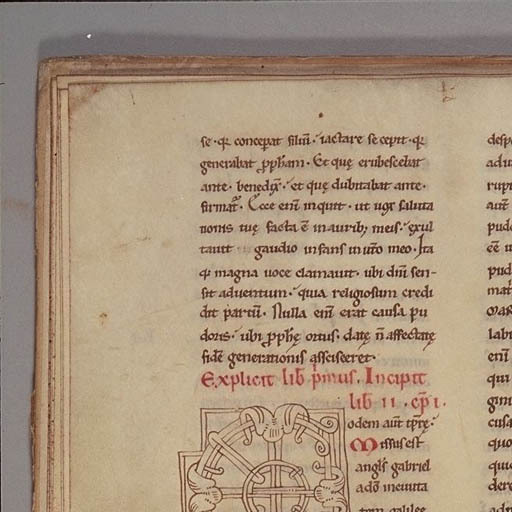 se · qr conceperat filiũ · iactare se cepit · qr
generabat ꝓpħam · Et quę erubescebat
ante · benedr̃ · et quę dubitabat ante ·
firmat̃ · Ecce eni͂ inquit · ut uox saluta
tionis tuę facta ẽ in aurib; meis · exul
tauit in gaudio infans in utͦo meo · Ita
qr magna uoce clamauit · ubi dñi sen-
sit aduentum · quia religiosum credi
dit partũ · Nulla eni͂ erat causa pu
doris · ubi ꝓphę ortus · datę ñ affectatę
fidẽ generationis assciseret ·
Explicit lib̃ p̃mus · Incipit
lib II · cp̃ I ·
odem aut̃ tp̃rę
Missus est
angls̃ gabriel
a dõ in ciuita
tem galilee
desp
adu
rupt
aut̃
pudo
eẽ u
pud
mat̃
labi
eni͂
qui
gini
cusa
quo
quie
dere